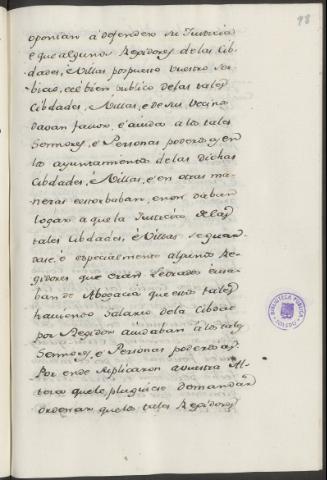 98
oponian a defender su Justicia
e que algunos Regidores de las Cib-
dades, é Villas pospuesto vuestro ser-
bicio, é el bien publico de las tales
Cibdades, é Villas, e de sus Vecinos
davan favor, é aiuda a los tales
Sennores, e Personas poderosas, en
los ayuntamientos de las dichas
Cibdades, é Villas, é en otras ma-
neras estorbaban, e non daban
logar a que la Justicia de las
tales Cibdades, é Villas se guar-
dase, é especialmente algunos Re-
gidores que eran Letrados é usa-
ban de Abogacia que estos tales
haviendo Salario de la Cibdad
por Regidor aiudaban a los tales
Sennores, e Personas poderosas.
Por ende suplicaron a vuestra Al-
teza que le pluguiese demandar
ordenar que los tales Regidores
BIBLIOTECA PUBLICA
TOLEDO